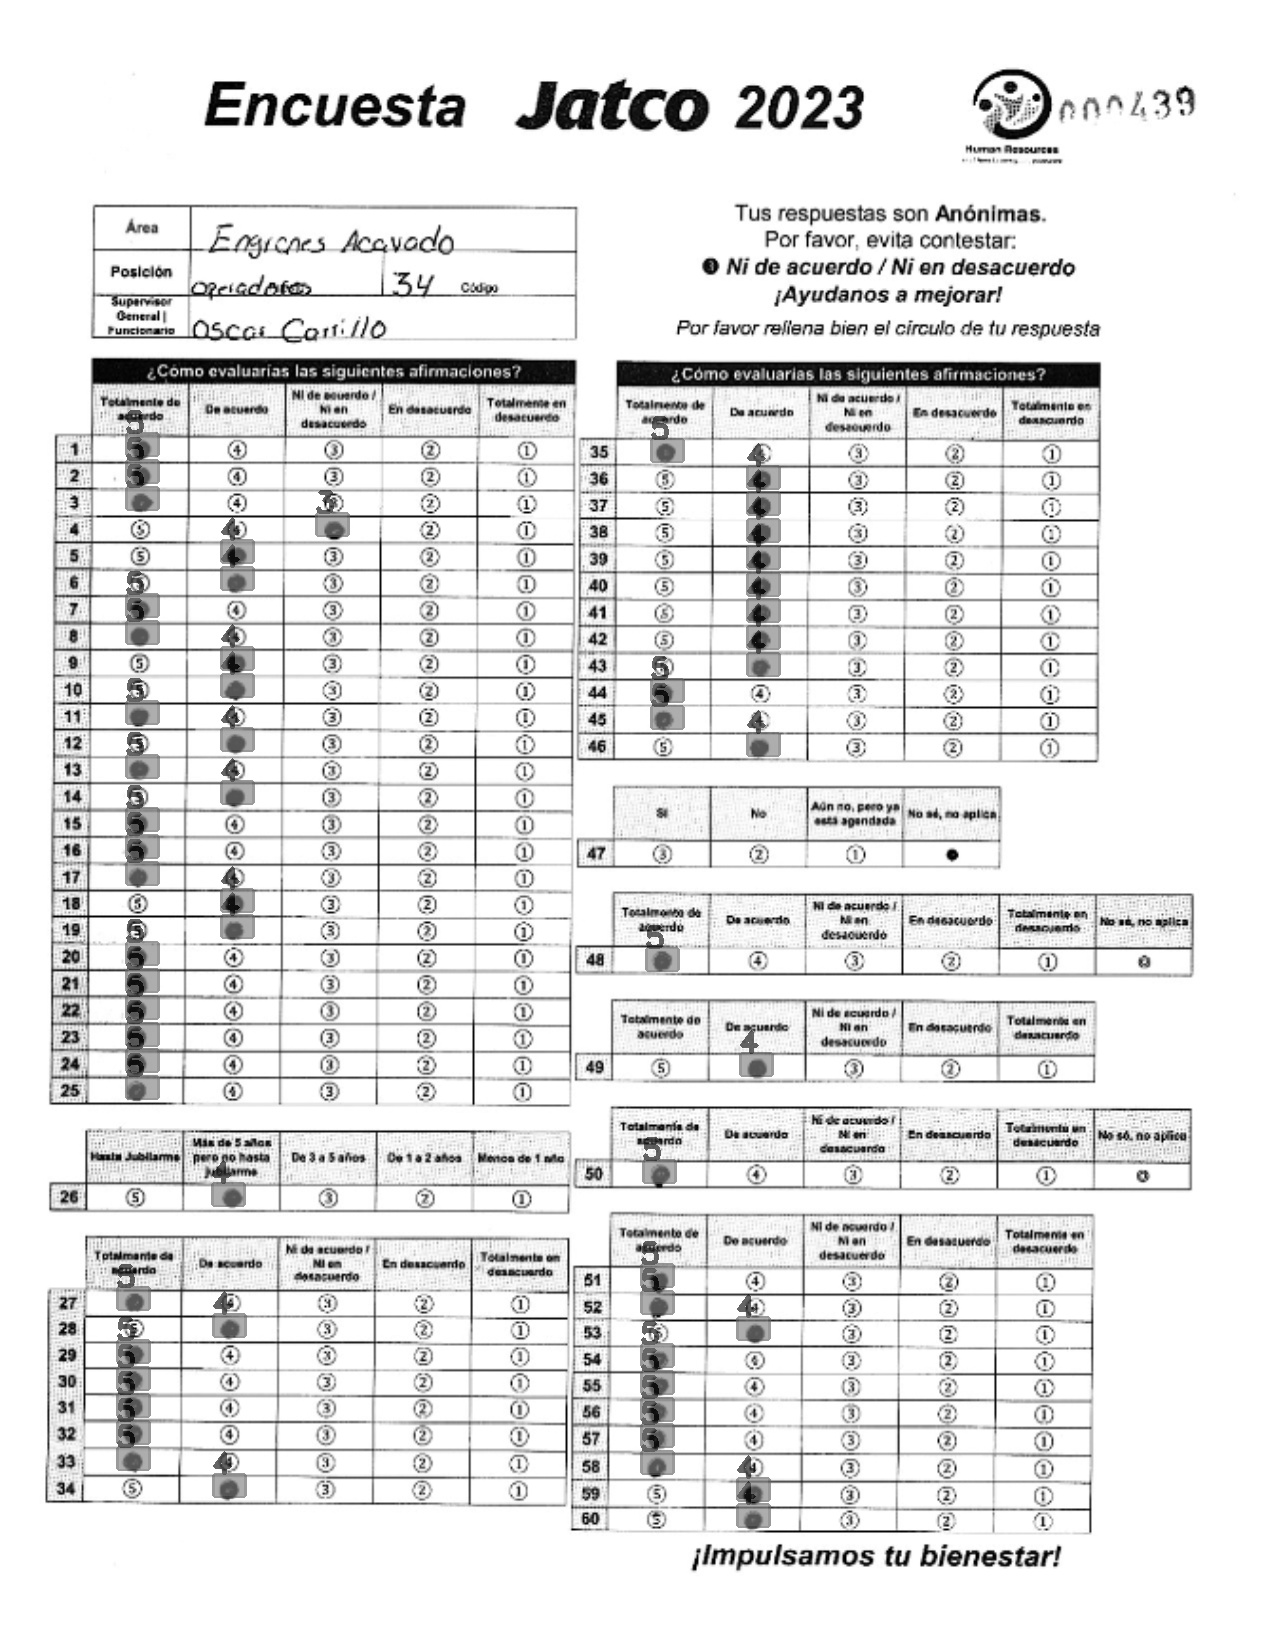 Encuesta Jatco 2023
Human Resources
000439
Área Engranes Acavado
Posición operadores 34 Código
Supervisor General | Funcionario Oscar Carrillo
Tus respuestas son Anónimas.
Por favor, evita contestar:
❸ Ni de acuerdo / Ni en desacuerdo
¡Ayudanos a mejorar!
Por favor rellena bien el círculo de tu respuesta
¿Cómo evaluarías las siguientes afirmaciones?
Totalmente de acuerdo De acuerdo Ni de acuerdo / Ni en desacuerdo En desacuerdo Totalmente en desacuerdo
1 5 4 3 2 1
2 5 4 3 2 1
3 4 3 2 1
4 5 4 2 1
5 5 4 3 2 1
6 5 3 2 1
7 5 4 3 2 1
8 4 3 2 1
9 5 4 3 2 1
10 5 3 2 1
11 4 3 2 1
12 5 3 2 1
13 4 3 2 1
14 5 3 2 1
15 5 4 3 2 1
16 5 4 3 2 1
17 4 3 2 1
18 5 4 3 2 1
19 5 3 2 1
20 5 4 3 2 1
21 5 4 3 2 1
22 5 4 3 2 1
23 5 4 3 2 1
24 5 4 3 2 1
25 4 3 2 1
Hasta Jubilarme Más de 5 años pero no hasta jubilarme De 3 a 5 años De 1 a 2 años Menos de 1 año
26 5 3 2 1
Totalmente de acuerdo De acuerdo Ni de acuerdo / Ni en desacuerdo En desacuerdo Totalmente en desacuerdo
27 4 3 2 1
28 5 3 2 1
29 5 4 3 2 1
30 5 4 3 2 1
31 5 4 3 2 1
32 5 4 3 2 1
33 4 3 2 1
34 5 3 2 1
¿Cómo evaluarías las siguientes afirmaciones?
Totalmente de acuerdo De acuerdo Ni de acuerdo / Ni en desacuerdo En desacuerdo Totalmente en desacuerdo
35 4 3 2 1
36 5 4 3 2 1
37 5 4 3 2 1
38 5 4 3 2 1
39 5 4 3 2 1
40 5 4 3 2 1
41 5 4 3 2 1
42 5 4 3 2 1
43 5 3 2 1
44 5 4 3 2 1
45 4 3 2 1
46 5 3 2 1
Si No Aún no, pero ya está agendada No sé, no aplica
47 3 2 1
Totalmente de acuerdo De acuerdo Ni de acuerdo / Ni en desacuerdo En desacuerdo Totalmente en desacuerdo No sé, no aplica
48 5 4 3 2 1
Totalmente de acuerdo De acuerdo Ni de acuerdo / Ni en desacuerdo En desacuerdo Totalmente en desacuerdo
49 5 4 3 2 1
Totalmente de acuerdo De acuerdo Ni de acuerdo / Ni en desacuerdo En desacuerdo Totalmente en desacuerdo No só, no aplica
50 5 4 3 2 1
Totalmente de acuerdo De acuerdo Ni de acuerdo / Ni en desacuerdo En desacuerdo Totalmente en desacuerdo
51 5 4 3 2 1
52 4 3 2 1
53 5 3 2 1
54 5 4 3 2 1
55 5 4 3 2 1
56 5 4 3 2 1
57 5 4 3 2 1
58 4 3 2 1
59 5 4 3 2 1
60 5 3 2 1
¡Impulsamos tu bienestar!